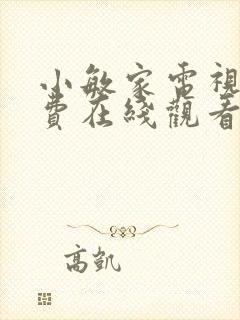 小敏家電視
費在綫觀看
高凱